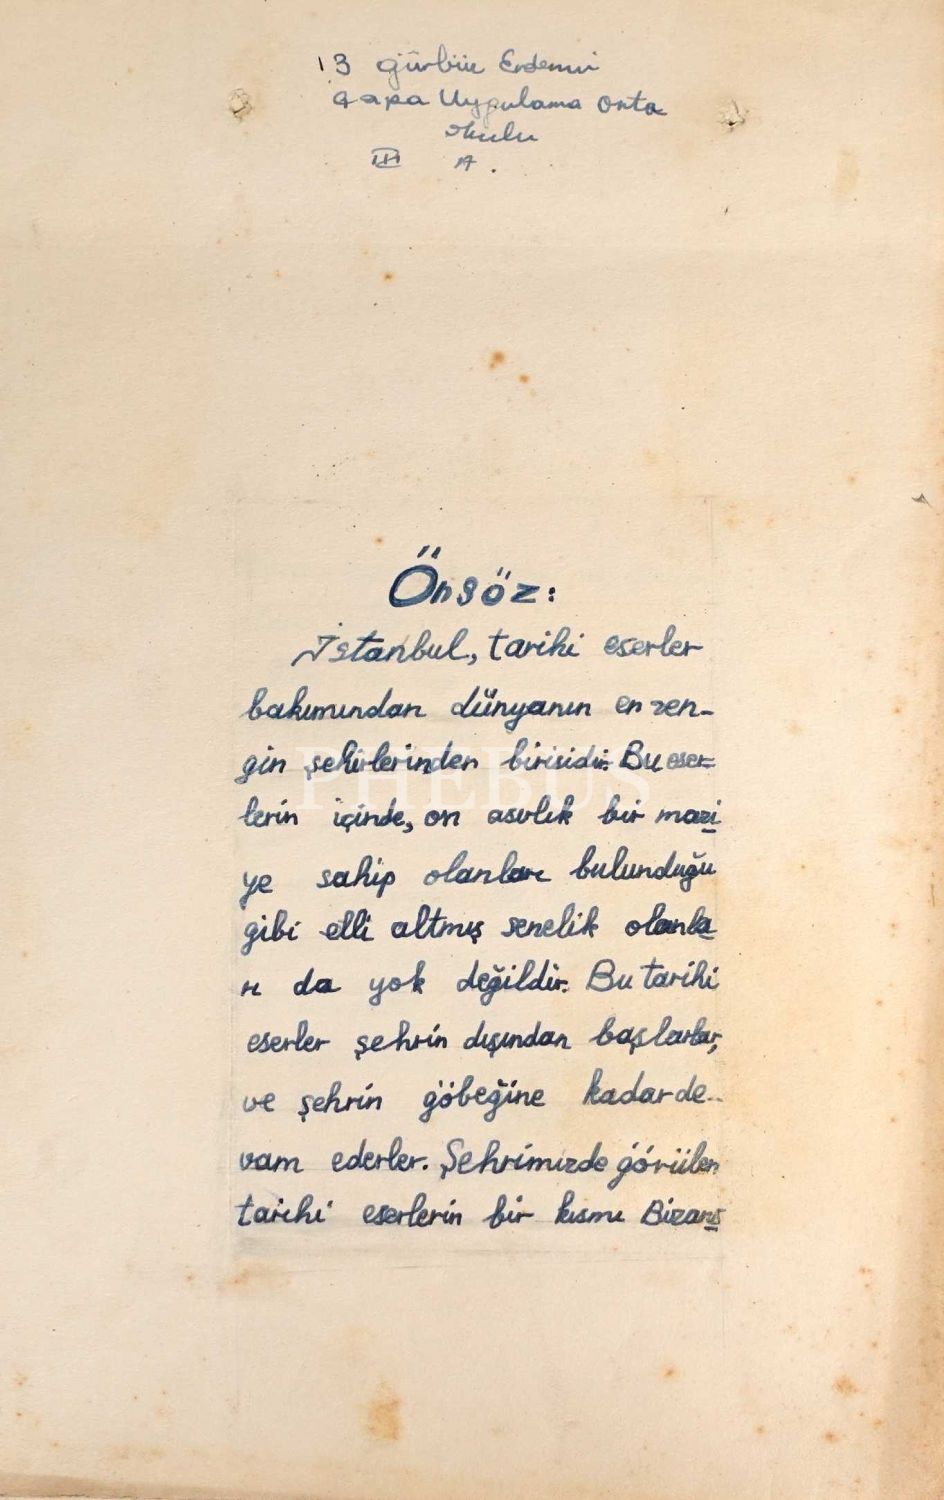 13 Gürbüz Erdemir
Çapa Uygulama Orta
okulu
III A.
Önsöz:
İstanbul, tarihi eserler
bakımından dünyanın en zen-
gin şehirlerinden birisidir. Bu eser-
lerin içinde, on asırlık bir mazi
ye sahip olanları bulunduğu
gibi elli altmış senelik olanla
rı da yok değildir. Bu tarihi
eserler şehrin dışından başlarlar,
ve şehrin göbeğine kadar de-
vam ederler. Şehrimizde görülen
tarihi eserlerin bir kısmı Bizans
PHEBUS